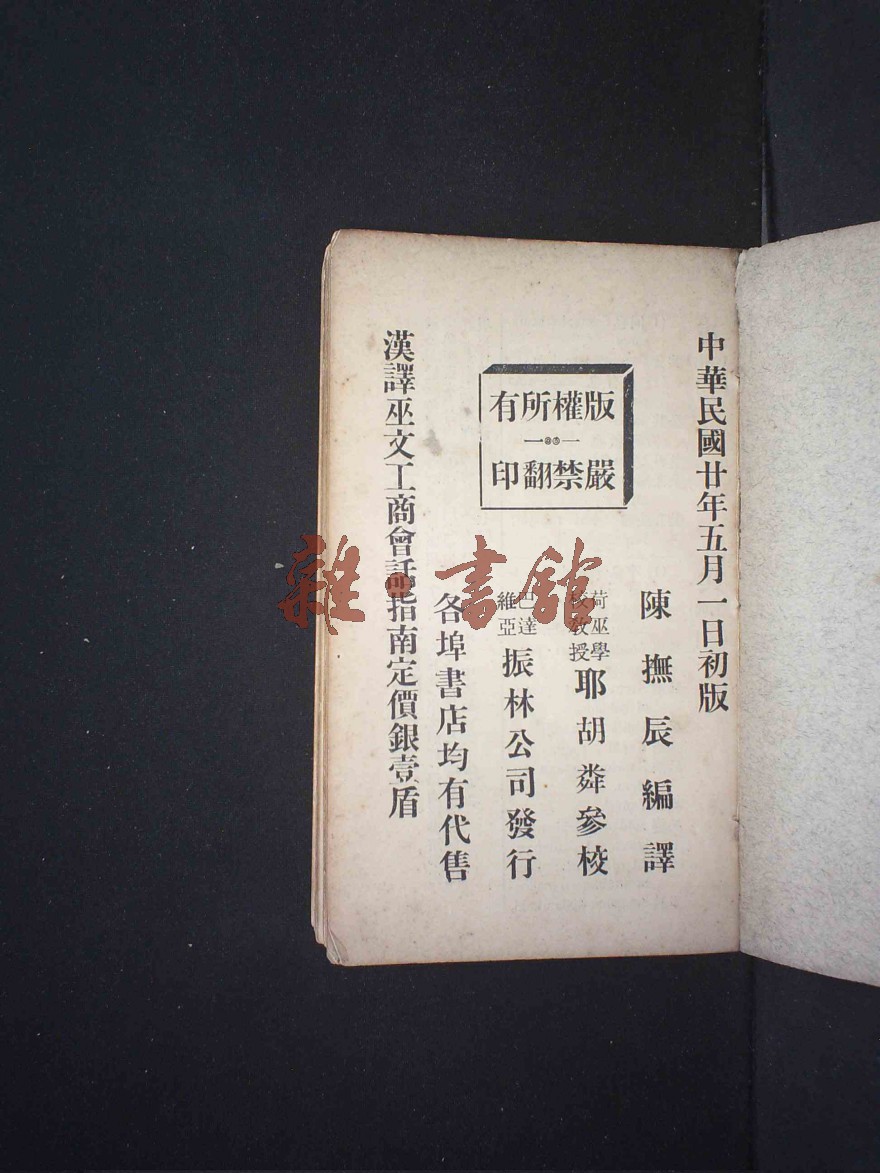 中華民國廿年五月一日初版
版權所有
嚴禁翻印
陳撫辰編譯
荷巫學校教授耶胡粦參校
巴達維亞振林公司發行
各埠書店均有代售
漢譯巫文工商會話指南定價銀壹盾
雜·書館